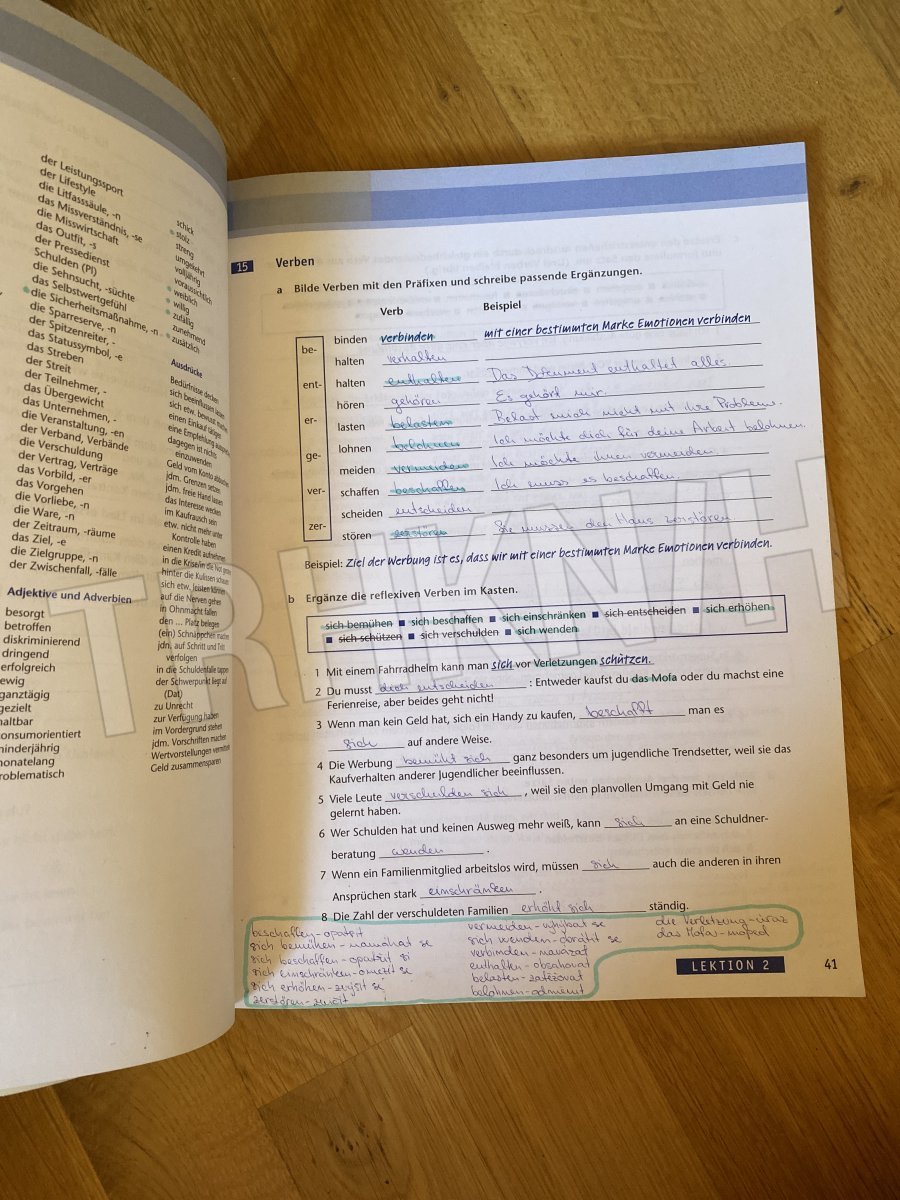 der Leistungssport
der Lifestyle
die Litfasssäule, -n
das Missverständnis, -se
die Misswirtschaft
das Outfit, -s
der Pressedienst
Schulden (Pl)
die Sehnsucht, -süchte
das Selbstwertgefühl
die Sicherheitsmaßnahme, -n
die Sparreserve, -n
der Spitzenreiter, -
das Statussymbol, -e
das Streben
der Streit
der Teilnehmer, -
das Übergewicht
das Unternehmen, -
die Veranstaltung, -en
der Verband, Verbände
die Verschuldung
der Vertrag, Verträge
das Vorbild, -er
das Vorgehen
die Vorliebe, -n
die Ware, -n
der Zeitraum, -räume
das Ziel, -e
die Zielgruppe, -n
der Zwischenfall, -fälle
Adjektive und Adverbien
besorgt
betroffen
diskriminierend
dringend
erfolgreich
ewig
ganztägig
gezielt
haltbar
onsumorientiert
ninderjährig
nonatelang
roblematisch
schick
stolz
streng
umgekehrt
volljährig
voraussichtlich
weiblich
willig
zufällig
zunehmend
zusätzlich
Ausdrücke
Bedürfnisse decken
sich beeinflussen lassen
sich etw. bewusst machen
einen Einkauf tätigen
eine Empfehlung
dagegen ist nichts
einzuwenden
Geld vom Konto
jdm. Grenzen setzen
jdm. freie Hand lassen
das Interesse wecken
im Kaufrausch sein
etw. nicht mehr unter
Kontrolle haben
einen Kredit aufnehmen
in die Krise/in die Not
hinter die Kulissen schauen
sich etw. leisten können
auf die Nerven gehen
in Ohnmacht fallen
den ... Platz belegen
(ein) Schnäppchen machen
jdn. auf Schritt und Tritt
verfolgen
in die Schuldenfalle tappen
der Schwerpunkt liegt auf
(Dat)
zu Unrecht
zur Verfügung haben
im Vordergrund stehen
jdm. Vorschriften machen
Wertvorstellungen
Geld zusammensparen
15 Verben
a Bilde Verben mit den Präfixen und schreibe passende Ergänzungen.
Verb Beispiel
be-
ent-
er-
ge-
ver-
zer-
binden verbinden mit einer bestimmten Marke Emotionen verbinden
halten verhalten
halten enthalten Das Dokument enthaltet alles
hören gehören Es gehört mir
lasten belasten Belast mich nicht mit ihre Probleme.
lohnen belohnen Ich möchte dich für deine Arbeit belohnen.
meiden vermeiden Ich möchte ihnen vermeiden
schaffen beschaffen Ich muss es beschaffen.
scheiden entscheiden
stören zerstören Sie mussen den Haus zerstören
Beispiel: Ziel der Werbung ist es, dass wir mit einer bestimmten Marke Emotionen verbinden.
b Ergänze die reflexiven Verben im Kasten.
sich bemühen ■ sich beschaffen ■ sich einschränken ■ sich entscheiden ■ sich erhöhen
■ sich schützen ■ sich verschulden ■ sich wenden
1 Mit einem Fahrradhelm kann man sich vor Verletzungen schützen.
2 Du musst dich entscheiden : Entweder kaufst du das Mofa oder du machst eine
Ferienreise, aber beides geht nicht!
3 Wenn man kein Geld hat, sich ein Handy zu kaufen, beschafft man es
sich auf andere Weise.
4 Die Werbung bemüht sich ganz besonders um jugendliche Trendsetter, weil sie das
Kaufverhalten anderer Jugendlicher beeinflussen.
5 Viele Leute verschulden sich , weil sie den planvollen Umgang mit Geld nie
gelernt haben.
6 Wer Schulden hat und keinen Ausweg mehr weiß, kann sich an eine Schuldner-
beratung wenden .
7 Wenn ein Familienmitglied arbeitslos wird, müssen sich auch die anderen in ihren
Ansprüchen stark einschränken .
8 Die Zahl der verschuldeten Familien erhöht sich ständig.
beschaffen - opatřit
sich bemühen - namáhat se
sich beschaffen - opatřit si
sich einschränken - omezit se
sich erhöhen - zvýšit se
zerstören - zničit
vermeiden - vyhýbat se
sich wenden - obrátit se
verbinden - navázat
enthalten - obsahovat
belasten - zatěžovat
belohnen - odměnit
die Verletzung - úraz
das Mofas - moped
LEKTION 2 41
TRHKNIH